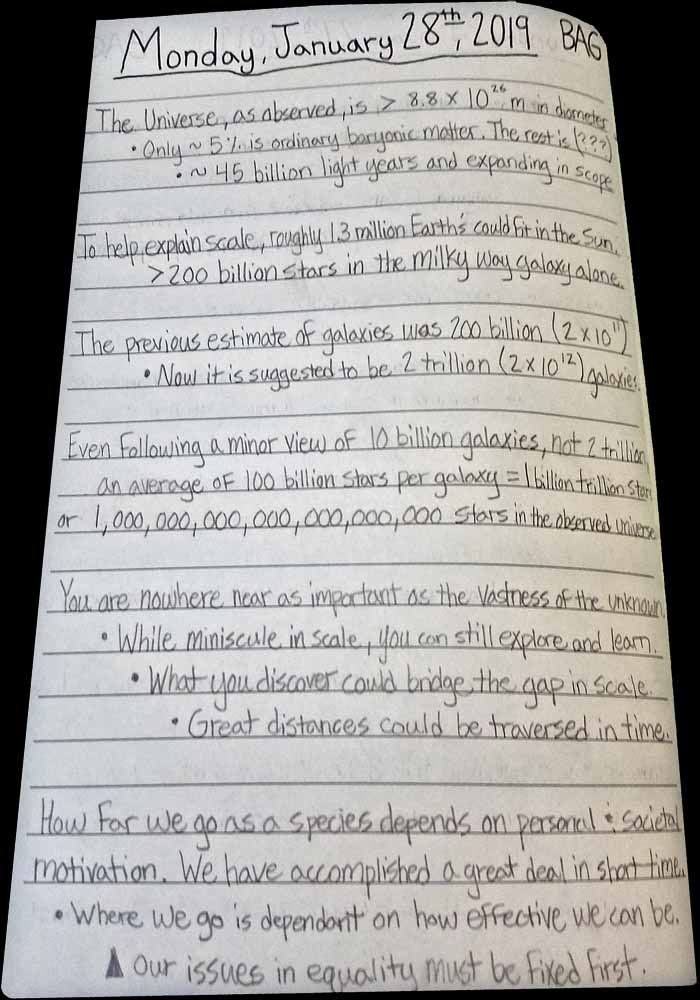 Monday, January 28th, 2019 BAG
The Universe, as observed, is > 8.8 x 10^26 m in diameter
• Only ~ 5% is ordinary baryonic matter. The rest is (???)
• ~ 45 billion light years and expanding in scope
To help explain scale, roughly 1.3 million Earth's could fit in the Sun.
>200 billion stars in the milky way galaxy alone.
The previous estimate of galaxies was 200 billion (2x10^11)
• Now it is suggested to be 2 trillion (2x10^12) galaxies.
Even Following a minor view of 10 billion galaxies, not 2 trillion,
an average of 100 billion stars per galaxy = 1 billion trillion stars
or 1,000,000,000,000,000,000,000 stars in the observed universe
You are nowhere near as important as the vastness of the unknown.
• While miniscule in scale, you can still explore and learn.
• What you discover could bridge the gap in scale.
• Great distances could be traversed in time.
How far we go as a species depends on personal & societal
motivation. We have accomplished a great deal in short time.
• Where we go is dependant on how effective we can be.
▲ Our issues in equality must be fixed first.